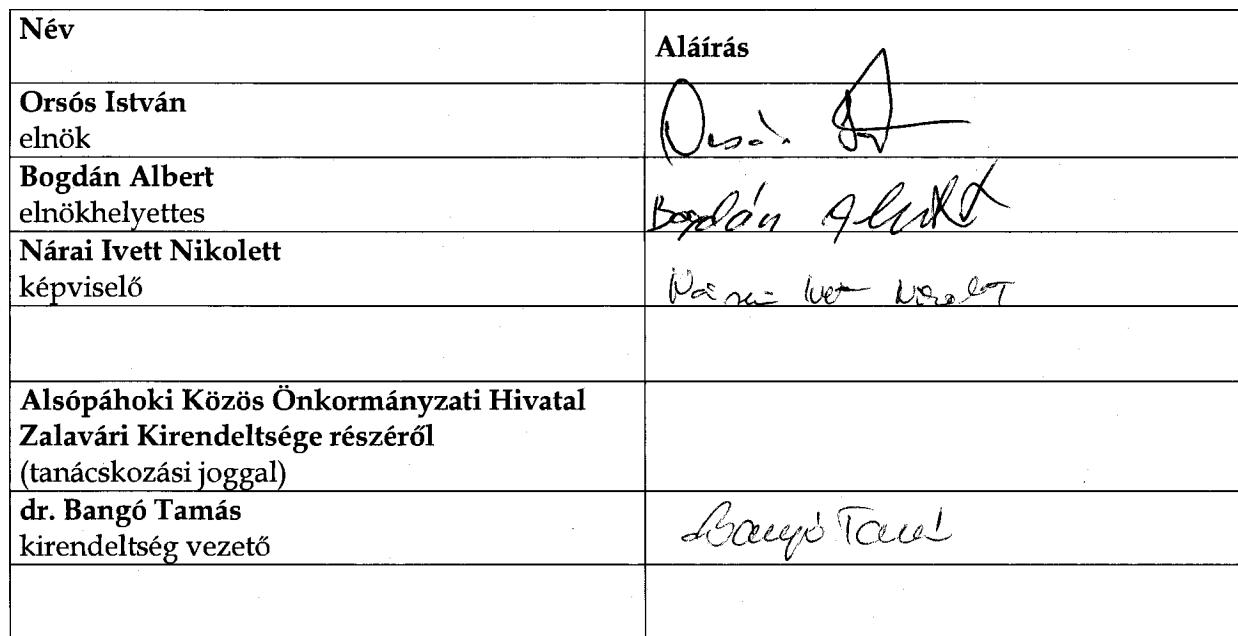 Név
Aláírás
Orsós István
elnök
Orsós
Bogdán Albert
elnökhelyettes
Bogdán Albert
Nárai Ivett Nikolett
képviselő
Nárai Ivett Nikolett
Alsópáhoki Közös Önkormányzati Hivatal
Zalavári Kirendeltsége részéről
(tanácskozási joggal)
dr. Bangó Tamás
kirendeltség vezető
Bangó Tamás